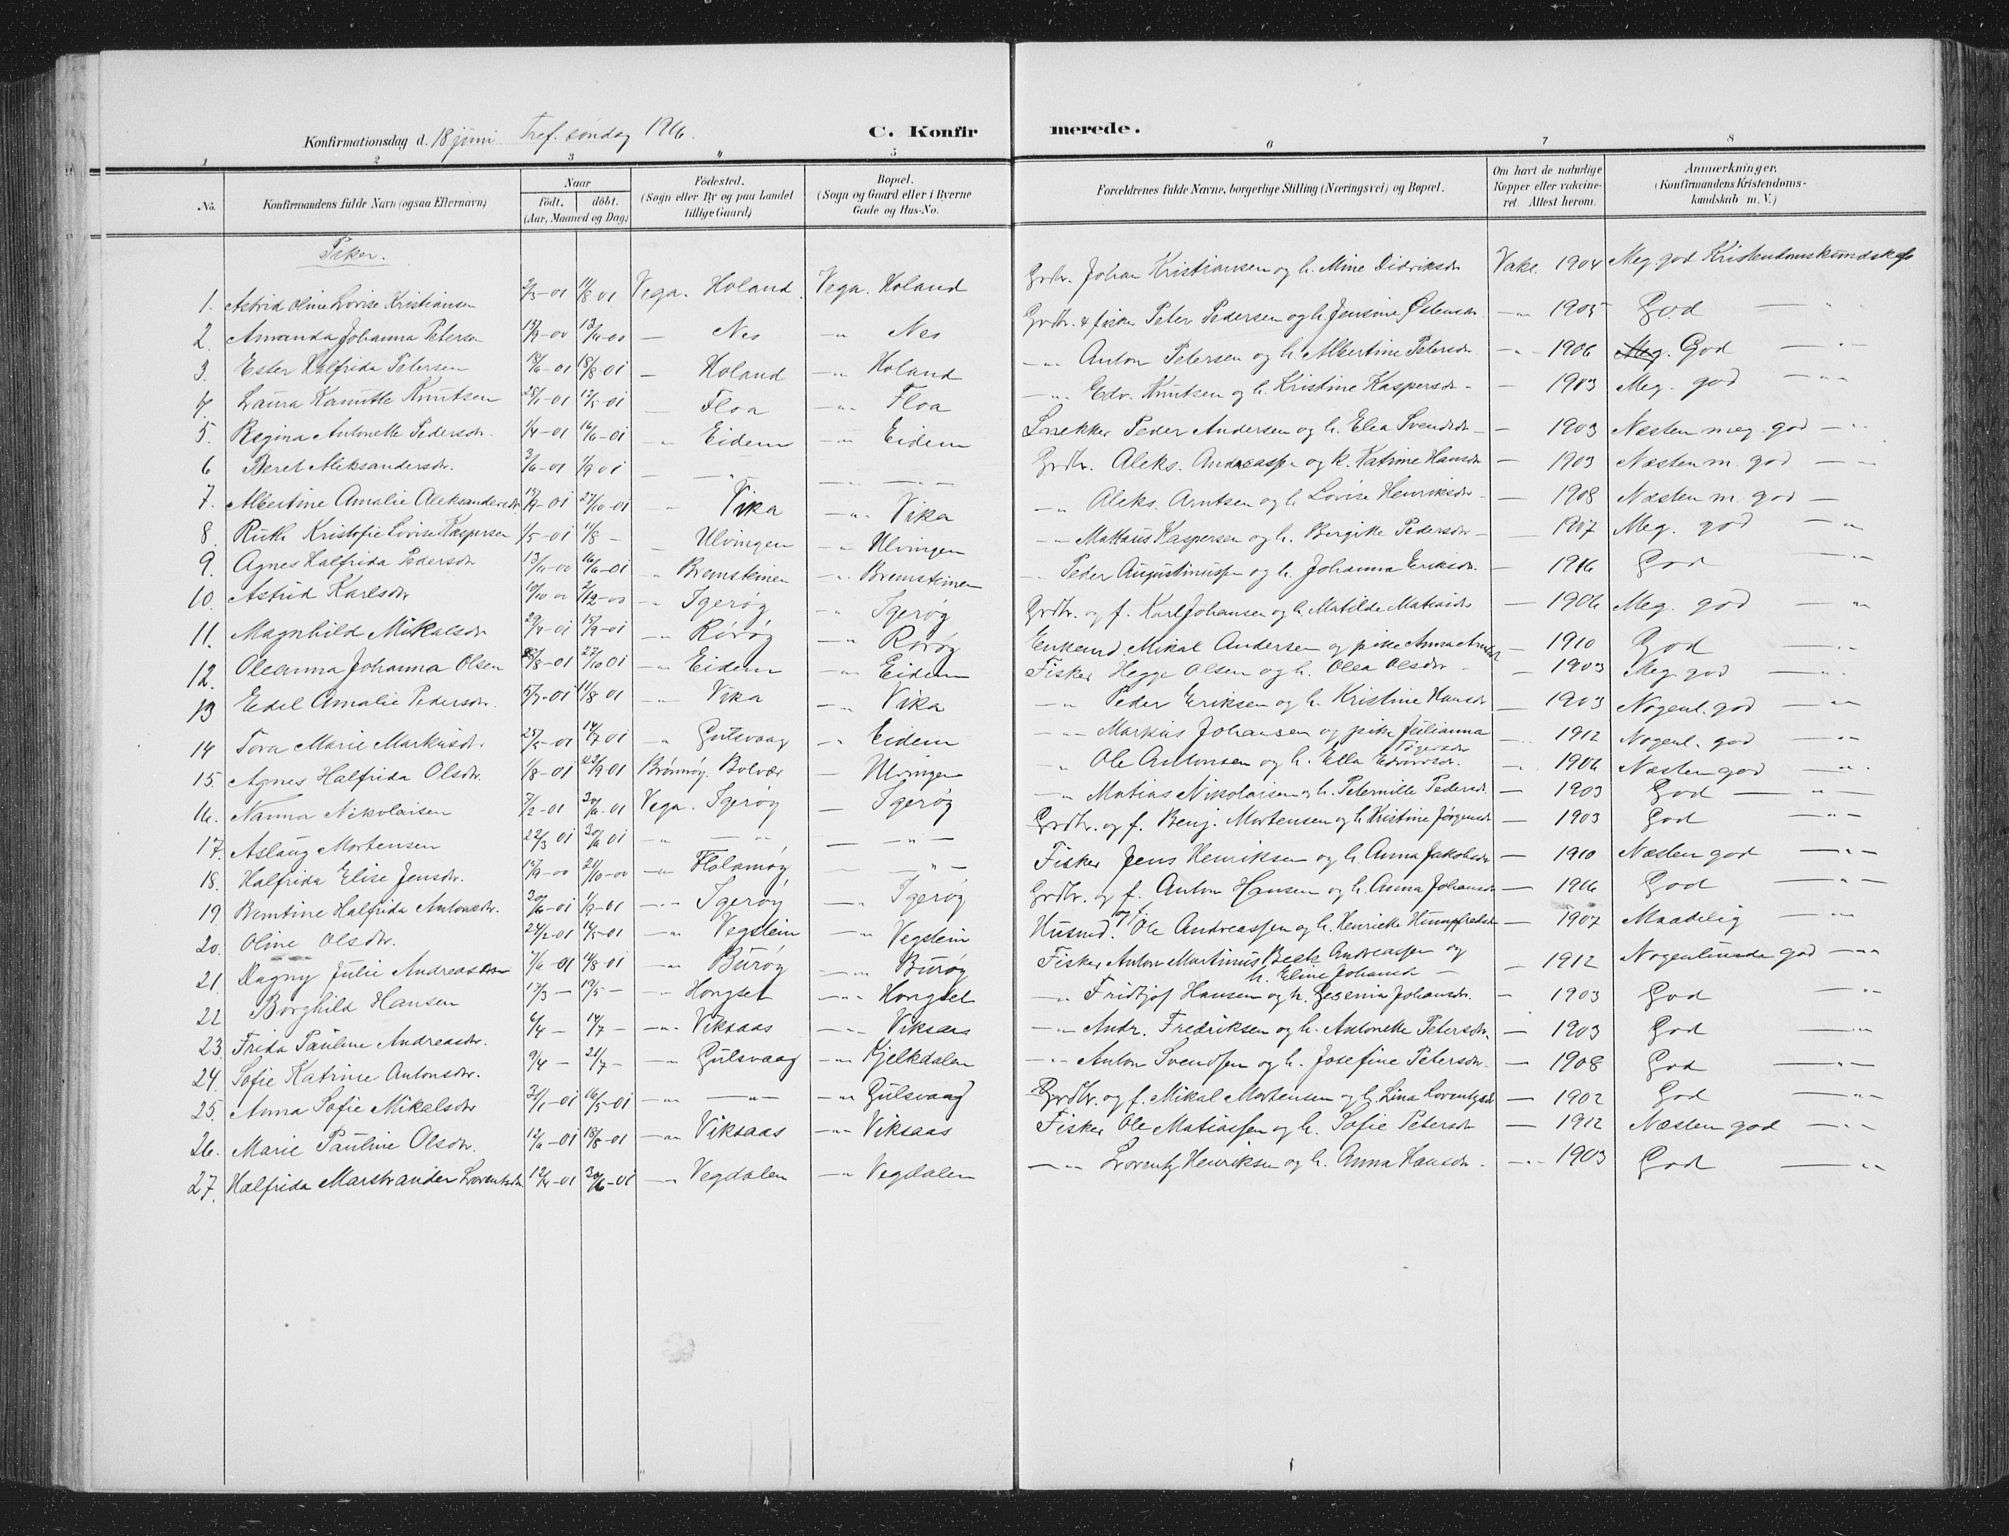 Konfirmationsdag d. 18 juni Tref. søndag 1916.
C. Konfirmerede.
1 2 3 4 5 6 7 8
No. | Konfirmandens fulde Navn (ogsaa Efternavn) | Naar født. døbt. (Aar, Maaned og Dag) | Fødested. (Sogn eller By og paa Landet tillige Gaard) | Bopæl. (Sogn og Gaard eller i Byerne Gade og Hus-No. | Forældrenes fulde Navne, borgerlige Stilling (Næringsvei) og Bopæl. | Om havt de naturlige Kopper eller vakcineret. Attest herom. | Anmærkninger. (Konfirmandens Kristendomskundskab m. V.)
Piker.
1. Astrid Oline Lovise Kristiansen 2/5-01 11/8 01 Vega. Holand. Vega. Holand Grdbr. Johan Kristiansen og h. Mine Didriksdr Vakc. 1904 Meg. god Kristendomskundskab
2. Amanda Johanna Petersen 19/9-00 13/10-00 — Nes -"- Nes Grdbr. & fisker Peter Pedersen og h. Jensine Østensdr -"- 1905 God — "
3. Ester Halfrida Petersen 18/6-01 18/8 01 — Holand -"- Holand -"- Anton Petersen og h. Albertine Petersdr -"- 1906 Meg. God — "-
4 Laura Kamitte Knutsen 25/1-01 12/5-01 — Floa -"- Floa -"- Edv. Knutsen og h. Kristine Kaspersdr - — 1903 Meg. god — "-
5. Regina Antonette Pedersdr. 1/4-01 16/6-01 -"- Eidem -"- Eidem Snekker Peder Andersen og h. Elea Svendsdr — 1903 Næsten meg. god -"-
6 Beret Aleksandersdr. 3/6-01 1/9 01 — " — — " — Grdbr. Aleks. Andreassen og h. Katrine Hansdr — 1903 Næsten m. god — "
7. Albertine Amalie Aleksandersdr 19/9-01 27/10-01 -"- Vika -"- Vika -"- Aleks. Arntsen og h. Lovise Henriksdr — 1908 Næsten m. god —
8. Ruth Kristofie Lovise Kaspersen 1/5-01 11/8 - -"- Ulvingen -"- Ulvingen -"- Mattæus Kaspersen og h. Bergitte Pedersdr — 1907 Meg. god — "
9. Agnes Halfrida Pedersdr 13/11-00 16/6-01 -"- Bremsteinen -"- Bremsteinen -"- Peder Augustinussen og h. Johanna Eriksdr. — 1916 God — "-
10. Astrid Karlsdr 10/10 00 2/12-00 -"- Igerøy -"- Igerøy Grdbr. og f. Karl Johansen og h. Matilde Matiasdr — 1906 Meg. god — "
11. Magnhild Mikalsdr 29/4-01 15/9-01 -"- Rørøy -"- Rørøy Enkemd. Mikal Andersen og pike Anna — 1910 God — "
12. Oleanna Johanna Olsen 28/8-01 27/10 01 -"- Eidem -"- Eidem Fisker Hegge Olsen og h. Olea Olsdr - — 1903 Meg. god — "-
13 Edel Amalie Pedersdr. 5/7-01 11/8 01 -"- Vika -"- Vika -"- Peder Eriksen og h. Kristine Hansdr — 1903 Nogenl. god — "-
14 Tora Marie Markusdr. 25/5-01 14/7 01 " Gulsvaag -"- Eidem -"- Markus Johansen og pike Julianna — 1912 Nogenl. god — "
15. Agnes Halfrida Olsdr. 1/8-01 22/9 01 Brønnøy. Bolvær — Ulvingen -"- Ole Antonsen og h. Ella Edvardsdr. " 1906 Næsten god — "
16. Nanna Nikolaisen 7/2-01 30/6-01 Vega. Igerøy — Igerøy -"- Matias Nikolaisen og h. Peternille Pedersdr — 1903 God — "-
17. Aslaug Mortensen 22/3 01 30/6 01 " — " — " — Grdbr. og f. Benj. Mortensen og h. Kristine Jørgensdr — 1903 God — "-
18. Halfrida Elise Jensdr. 15/9-00 21/10-00 -"- Flolamøy — "- Fisker Jens Henriksen og h. Anna Jakobsdr — 1910 Næsten god — "-
19 Berntine Halfrida Antonsdr. 20/6-01 1/9-01 -"- Igerøy -"- Igerøy Grdbr. og f. Anton Hansen og h. Anna Johansdr — 1916 God — "-
20. Oline Olsdr. 24/2-01 16/5-01 -"- Vegstein -"- Vegstein Husmd. og f. Ole Andreassen og h. Henrikke Humpfredsdr — 1907 Maadelig — "-
21. Dagny Julie Andreassen 7/6 01 18/8-01 -"- Burøy -"- Burøy Fisker Anton Martinus Beck Andreassen og h. Eline Johansdr — 1912 Nogenlunde god -"-
22 Borghild Hansen 17/3 — 19/5 - -"- Hongset -"- Hongset -"- Fridtjof Hansen og h. Gesenia Johansdr. — 1903 God — "-
23. Frida Pauline Andreasdr. 6/4 — 14/7 - -"- Viksaas -"- Viksaas -"- Andr. Fredriksen og h. Antonette Petersdr. — 1903 God — "-
24. Sofie Katrine Antonsdr. 9/4 - 21/7 - -"- Gulsvaag -"- Kjelkdalen -"- Anton Svendsen og h. Josefine Petersdr. — 1908 God — "-
25. Anna Sofie Mikalsdr 31/1-01 16/5-01 -"- — " — -"- Gulsvaag Grdbr. og f. Mikal Mortensen og h. Lina Lorentzsdr — 1902 God — "-
26. Marie Pauline Olsdr. 12/6-01 18/8-01 -"- Viksaas -"- Viksaas Fisker Ole Matiassen og h. Sofie Petersdr — 1912 Næsten god — "-
27. Halfrida Marstrander Lorentsdr 12/4-01 30/6-01 -"- Vegdalen -"- Vegdalen -"- Lorentz Henriksen og h. Anna Hansdr. -"- 1903 God — "-